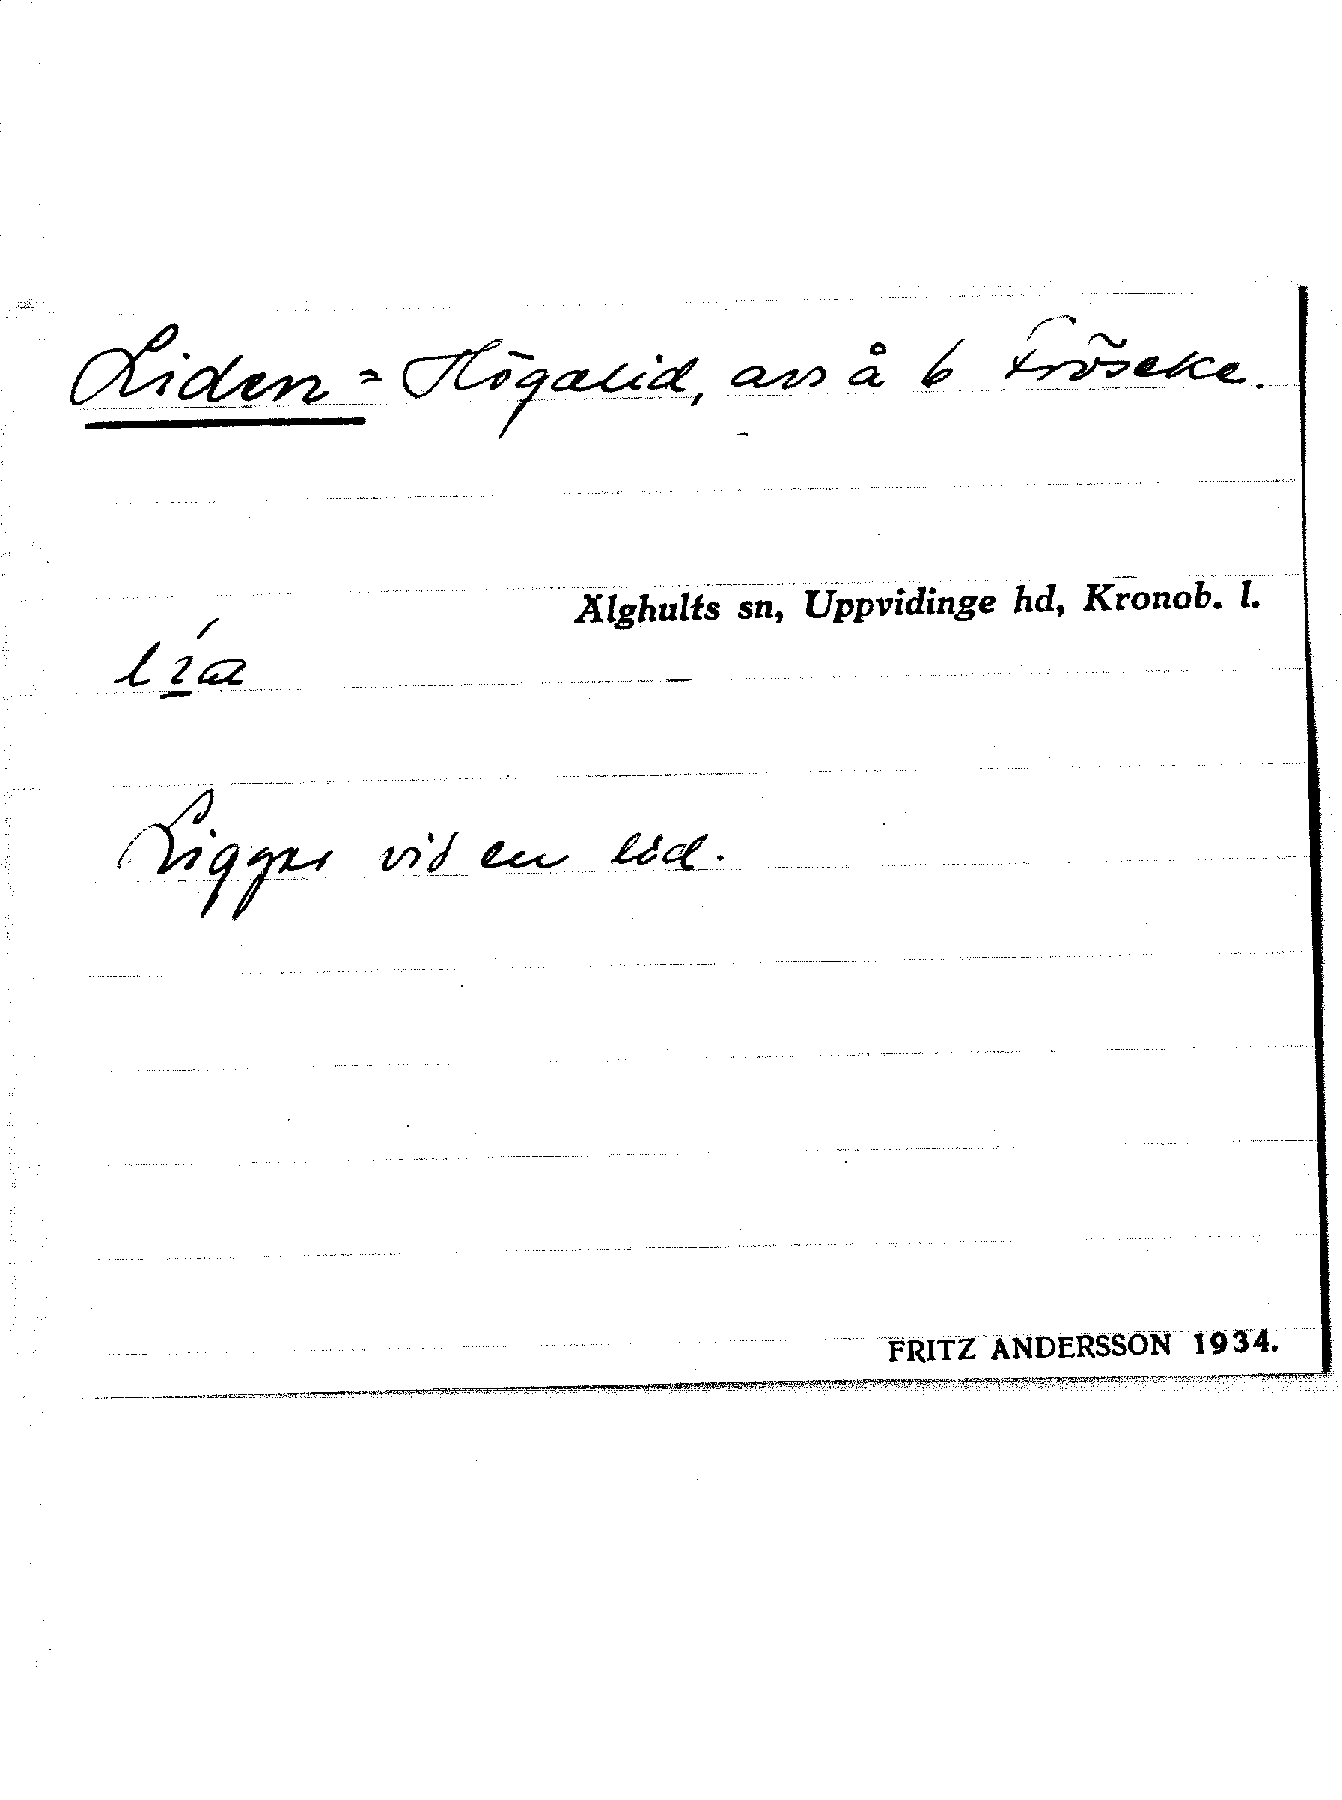 Liden = Högalid, avs å 6 Fröseke.
Älghults sn, Uppvidinge hd, Kronob. l.
Ligger vid en lid.
FRITZ ANDERSSON 1934.